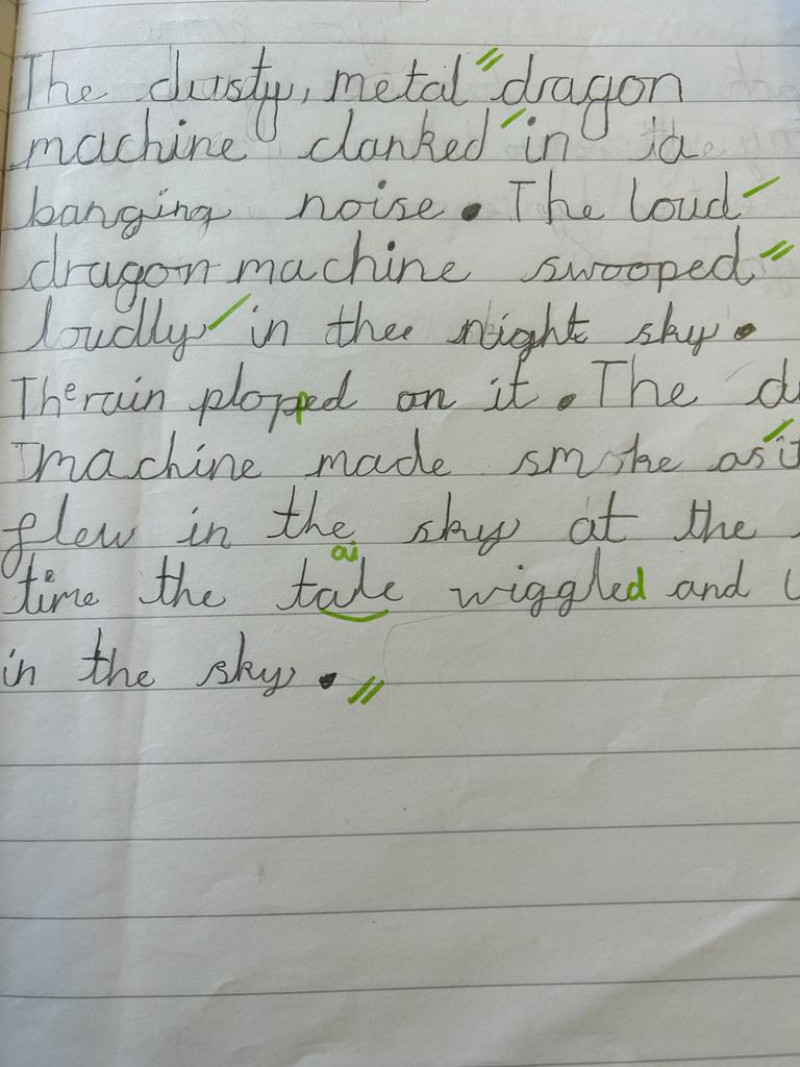 The dusty, metal dragon
machine clanked in a
banging noise. The loud
dragon machine swooped
loudly in the night sky.
The rain plopped on it. The
machine made smoke as
flew in the sky at the
ai
time the tale wiggled and
in the sky.